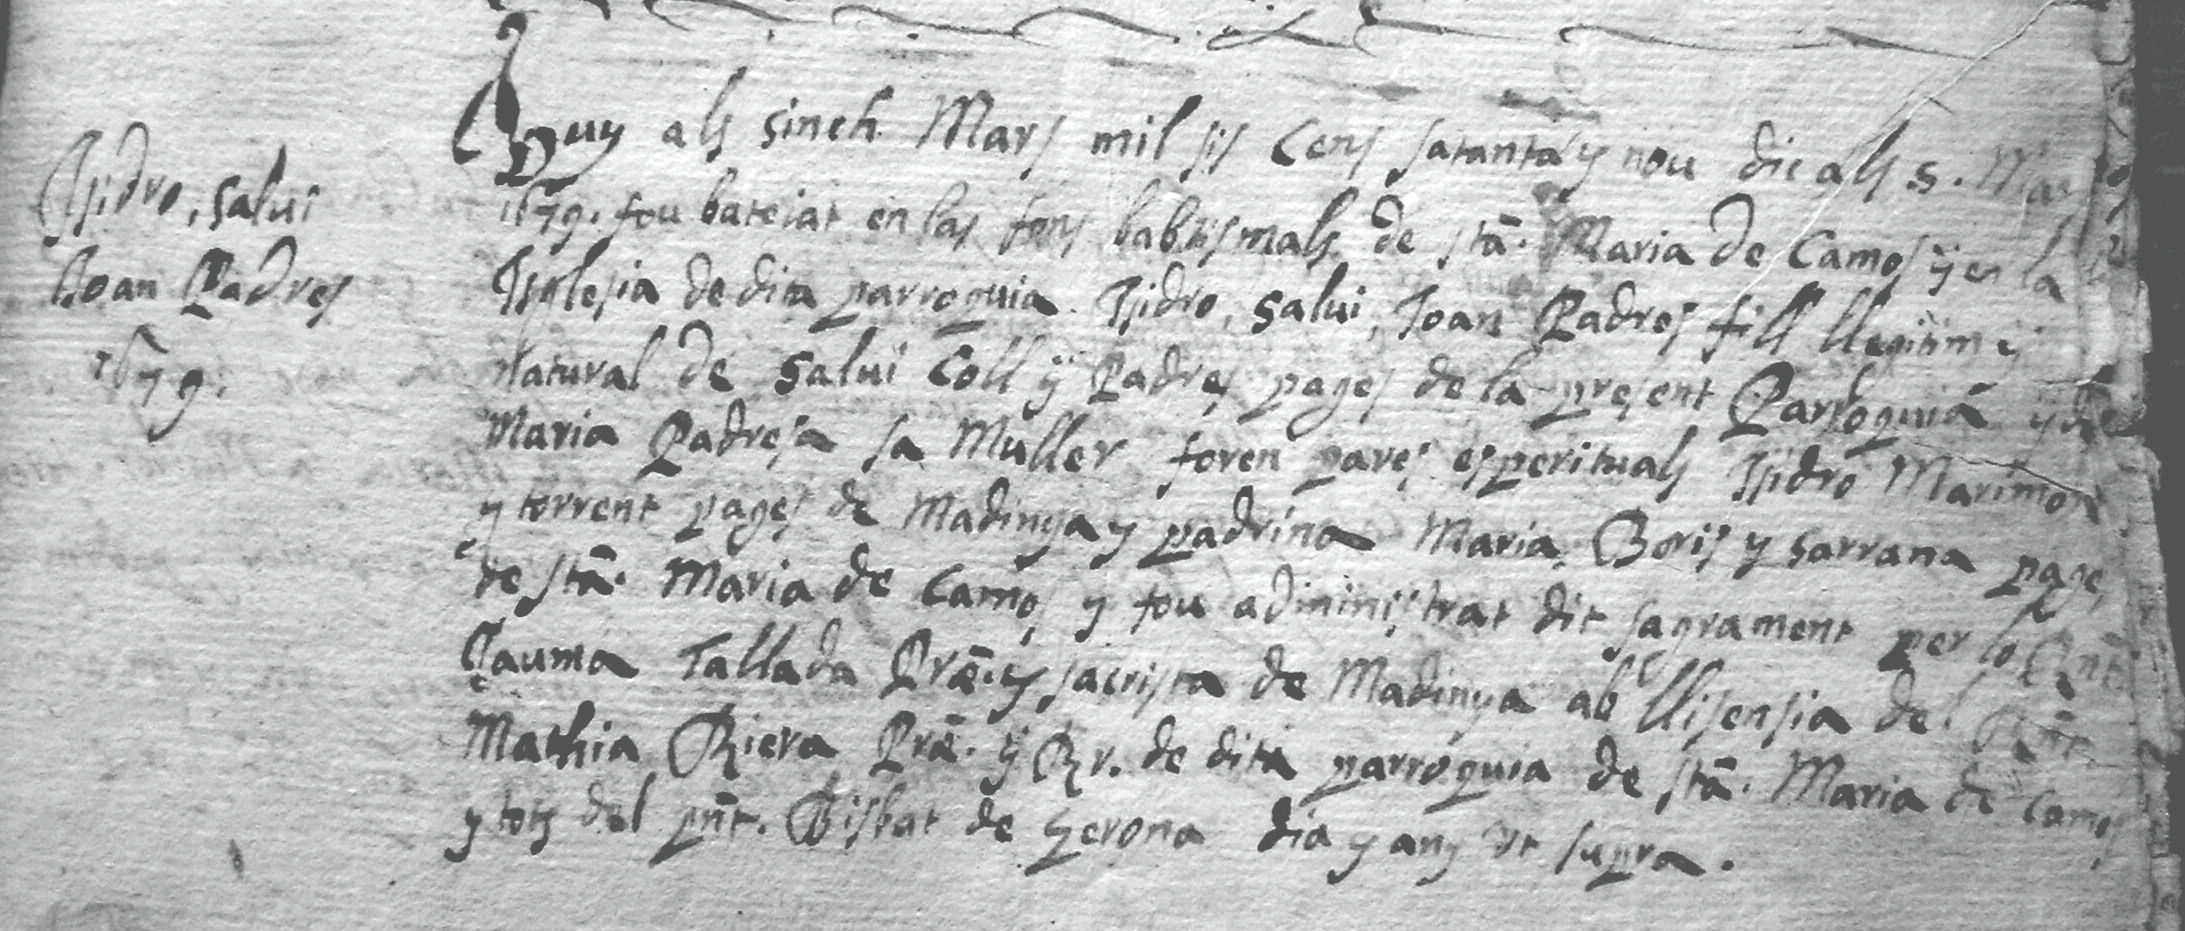 Isidro, Salui
Joan Padres
1679.
Vuy als sinch Mars mil sis Cens satanta y nou dic als 5. Mars
1679. fou bateiat en las fons babtismals de Stā. Maria de Camos ÿ en la
Isglesia de dita parroquia. Isidro, Salui, Joan Padres fill llegitim ẏ
Natural de Salui Coll ÿ Padres pages de la present Parroquia y de
Maria Padresa sa Muller foren pares esperituals Isidro Marimon
y torrent pages de Madinya y padrina Maria Boris y Sarrana page
de Stā. Maria de Camos y fou administrat dit sagrament per lo Rn̄t
Jauma Tallada Prā. y sacrista de Madinya ab llisensia del Rn̄t
Mathia Riera Prā. ÿ Rr. de dita parroquia de Stā. Maria de Camos
y tots del pn̄t. Bisbat de Gerona dia y any vt supra.